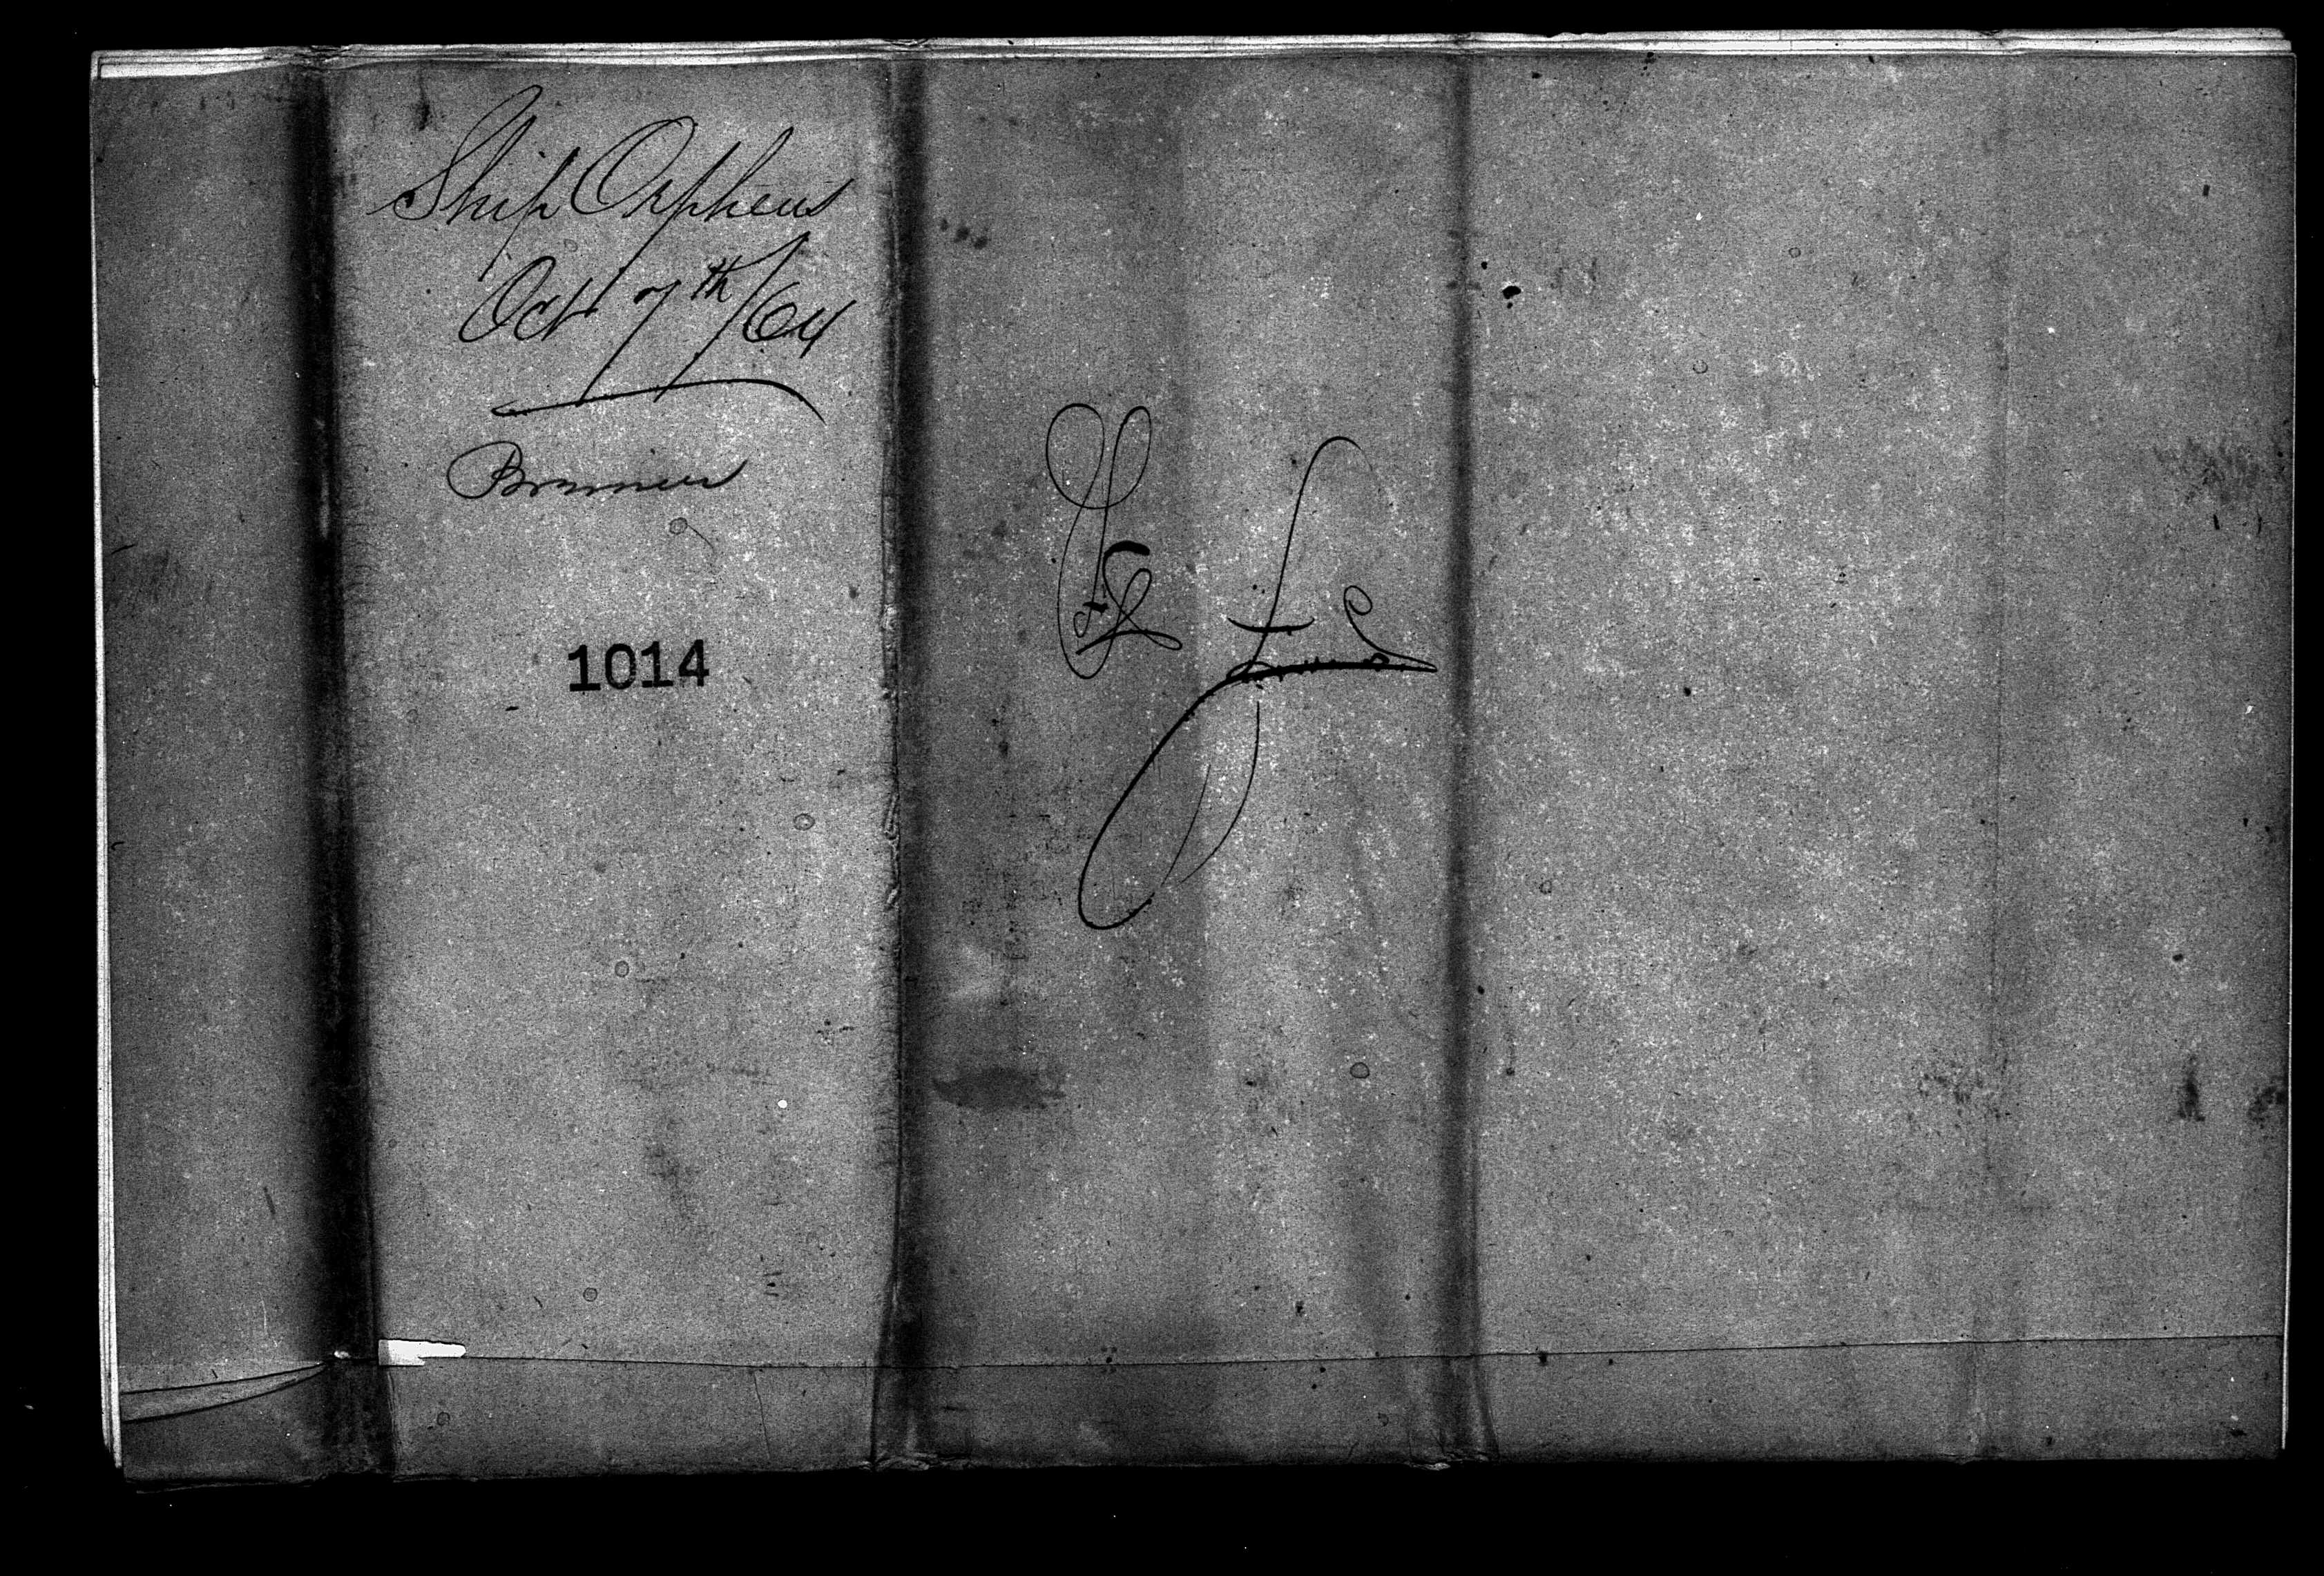 Ship Orpheus
Oct 7th/64
Bremen
1014